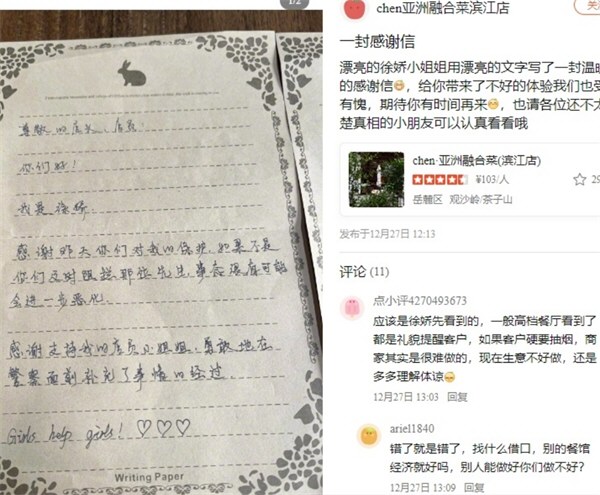 1/2
尊敬的店长、店员!
你们好!
我是徐娇
感谢昨天你们对我的保护,如果不是
你们及时阻拦那位先生,事态很有可能
会进一步恶化
感谢支持我的店员小姐姐,勇敢地在
警察面前补充了事情的经过
Girls help girls! ♡♡♡
Writing Paper
chen亚洲融合菜滨江店
一封感谢信
漂亮的徐娇小姐姐用漂亮的文字写了一封温
的感谢信😁,给你带来了不好的体验我们也
有愧,期待你有时间再来😁,也请各位还不
楚真相的小朋友可以认真看看哦
chen·亚洲融合菜(滨江店)
¥103/人
29
岳麓区 观沙岭/茶子山
发布于12月27日 12:13
评论 (11)
点小评4270493673
应该是徐娇先看到的,一般高档餐厅看到了
都是礼貌提醒客户,如果客户硬要抽烟,商
家其实是很难做的,现在生意不好做,还是
多多理解体谅😁
12月27日 13:03 回复
ariel1840
错了就是错了,找什么借口,别的餐馆
经济就好吗,别人能做好你们做不好?
12月27日 13:09 回复